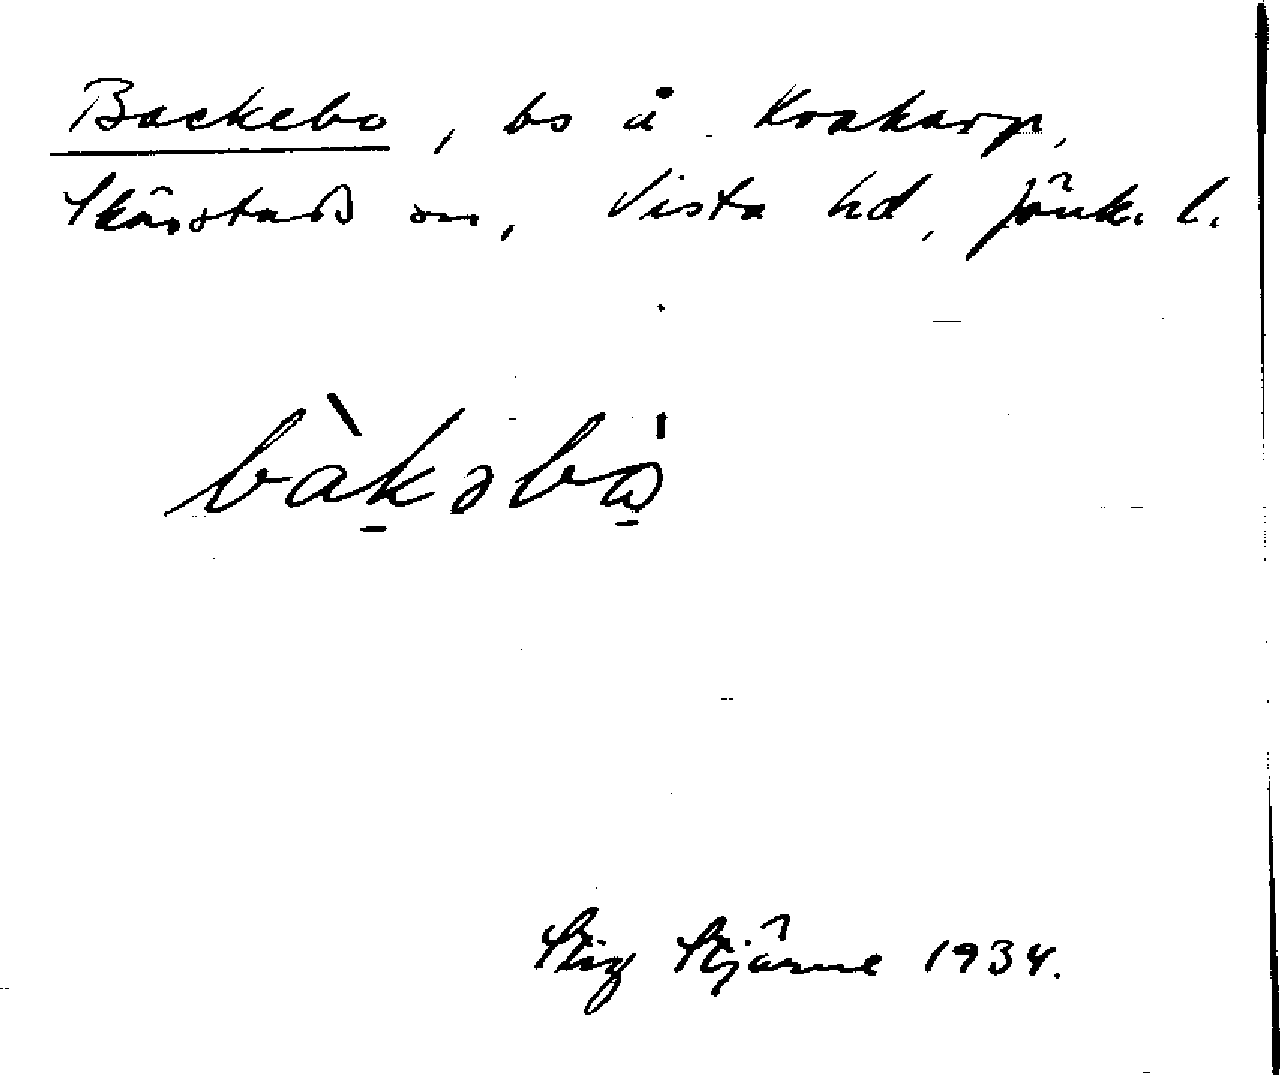 Backebo, bs å Krakarp,
Skärstads sn, Vista hd, Jönk. l.
bàkəbɷ̀
Stig Stjärne 1934.